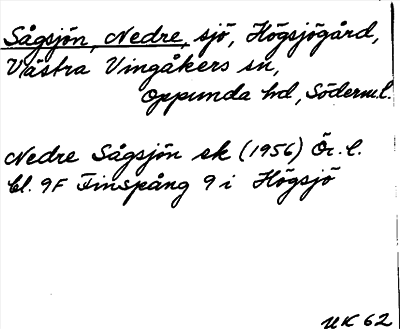 Sågsjön, Nedre, sjö, Högsjögård,
Västra Vingåkers sn,
Oppunda hd, Söderm.l.
Nedre Sågsjön ek (1956) Ör. l.
bl. 9F Finspång 9 i Högsjö
UK 62